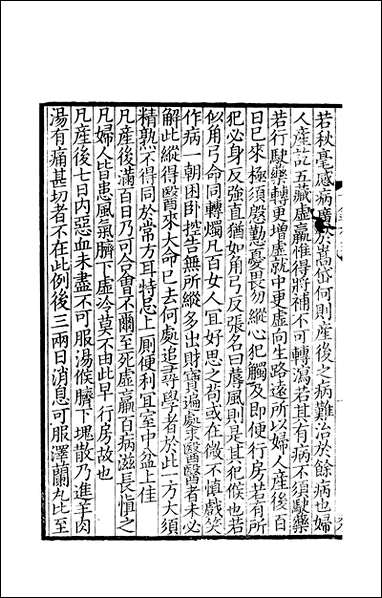 若秋毫感病廣於嵩岱何則産後之病難治於餘病也婦
人産訖五藏虛羸惟得將補不可轉瀉若其有病不須駃藥
若行駃藥轉更增虛就中更虛向生路遠所以婦人産後百
日已來極須慇懃憂畏勿縱心犯觸及即便行房若有所
犯必身反強直猶如角弓反張名曰蓐風則是其犯候也若
似角弓命同轉燭凡百女人宜好思之苟或在微不慎戲笑
作病一朝困卧控告無所縱多出財寶遍處求醫醫者未必
解此縱得醫來大命已去何處追尋學者於此一方大須
精熟不得同於常方耳特忌上厠便利宜室中盆上佳
凡産後滿百日乃可合會不爾至死虛羸百病滋長慎之
凡婦人皆患風氣臍下虛冷莫不由此早行房故也
凡産後七日內惡血未盡不可服湯候臍下塊散乃進羊肉
湯有痛甚切者不在此例後三兩日消息可服澤蘭丸比至